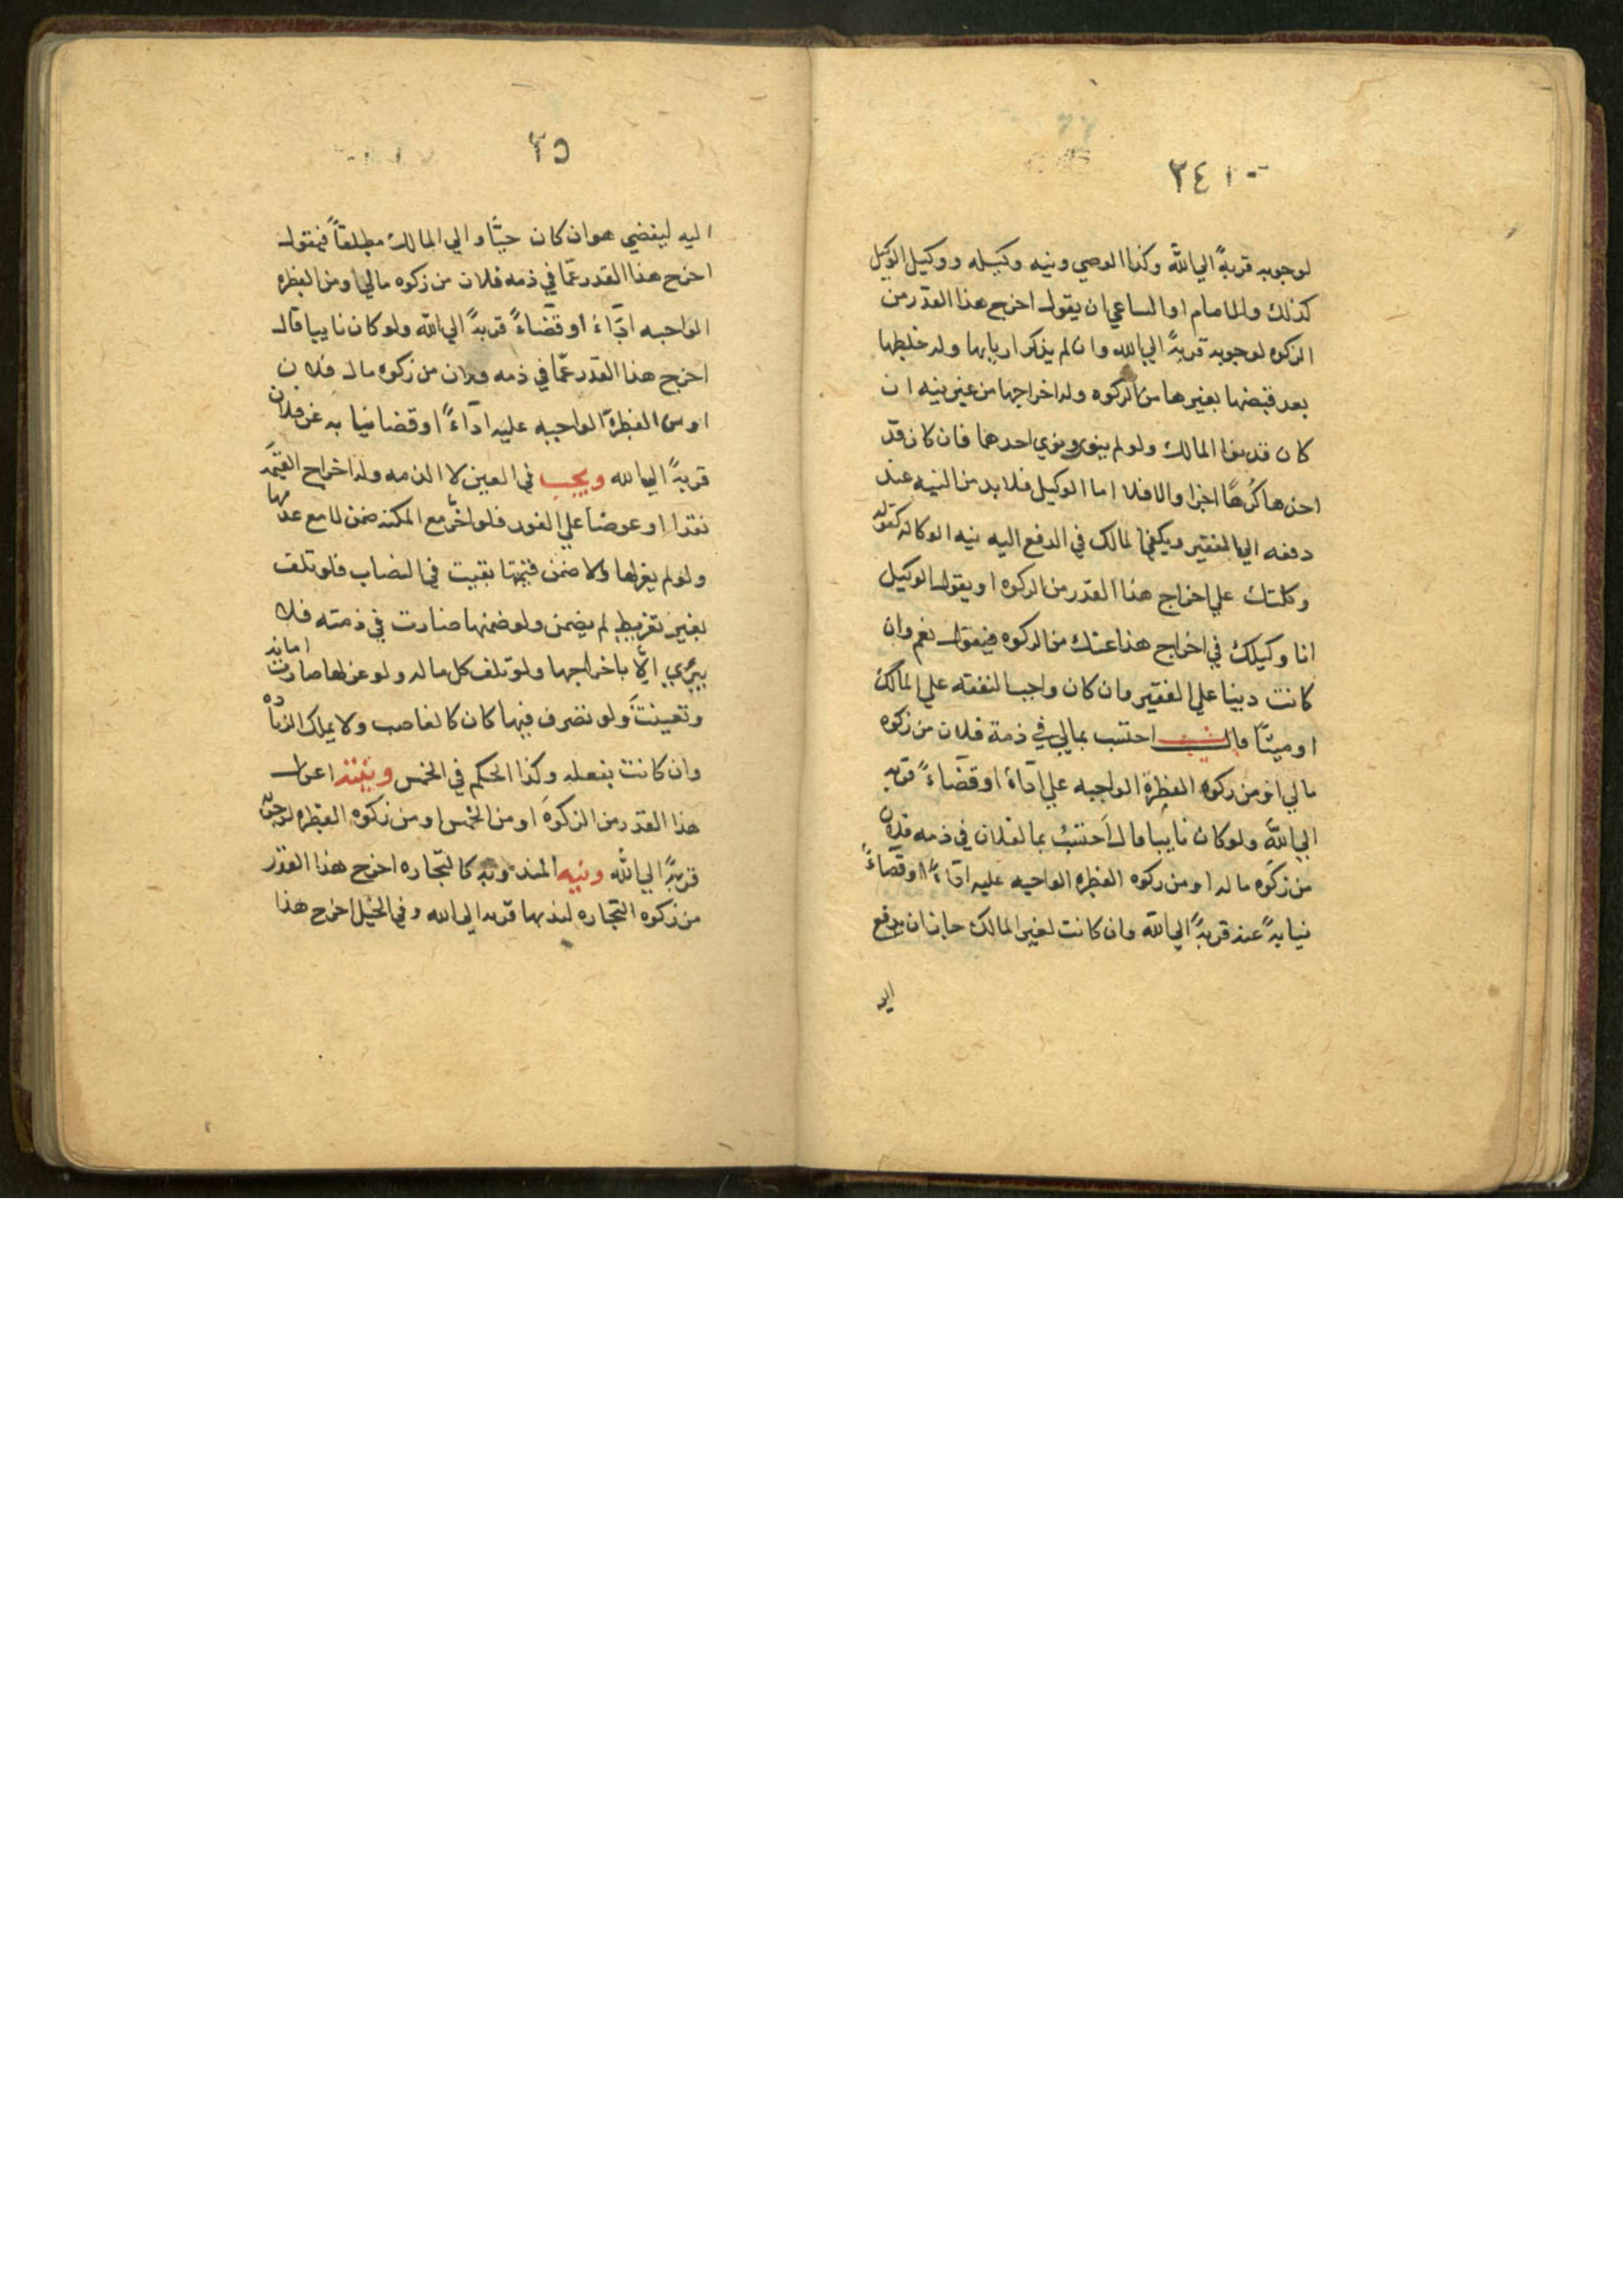 ٢٤١٠
لوجوبه قربةً الي الله وكذا الوصي ونيه وكيله ووكيل الوكيل
كذلك والامام او الساعي ان يقول اخرج هذا القدر من
الزكوه لوجوبه قربةً الي الله وان لم يذكر اربابها وله خلطها
بعد قبضها بغيرها من الزكوه وله اخراجها من غير نيه ان
كان قد نوا المالك ولو لم ينو ونوي احدهما فان كان قد
اخذها كُرهًا اجزا والا فلا اما الوكيل فلا بد من النيه عند
دفعه الي الفقير ويكفي المالك في الدفع اليه نيه الوكاله كقوله
وكلتك علي اخراج هذا القدر من الزكوه او يقول الوكيل
انا وكيلك في اخراج هذا عنك من الزكوه فيقول نعم وان
كانت دينا علي الفقير وان كان واجب النفقه علي المالك
او ميتًا قال احتسب بمالي في ذمة فلان من زكوه
مالي او من زكوه الفطرة الواجبه علي اداءً او قضاءً قربه
الي الله ولو كان نايبا قال احتسب بما لفلان في ذمه فلان
من زكوه ماله او من زكوه الفطره الواجبه عليه اداءً او قضاءً
نيابةً عنه قربةً الي الله وان كانت لغير المالك جاز ان يدفع
اليه
٢٥
اليه ليقضي هو ان كان حيًّا والي المالك مطلقاً فيقول
اخرج هذا القدر عمّا في ذمه فلان من زكوه مالي او من الفطره
الواجبه اداءً او قضاءً قربةً الي الله ولو كان نايبا قال
اخرج هذا القدر عمّا في ذمه فلان من زكوه مال فلان
او من الفطرة الواجبه عليه اداءً او قضا نيابه عن فلان
قربةً الي الله ويجب في العين لا الذمه وله اخراج القيمه
نقدا او عوضا علي الفور فلو اخّر مع المكنه ضمن لا مع عدمها
ولو لم يعزلها ولا ضمن قيمتها بقيت في النصاب فلو تلف
بغير تفريط لم يضمن ولو ضمنها صارت في ذمته فلا
يبري الّا باخراجها ولو تلف كل ماله ولو عزلها صارت امانه
وتعينت ولو تصرف فيها كان كالغاصب ولا يملك الزياده
وان كانت بفعله وكذا الحكم في الخمس ونيته اعزل
هذا القدر من الزكوة او من الخمس او من زكوه الفطره لوجوبه
قربةً الي الله ونيه المندوبه كالتجاره اخرج هذا القدر
من زكوه التجاره لندبها قربه الي الله وفي الخيل اخرج هذا